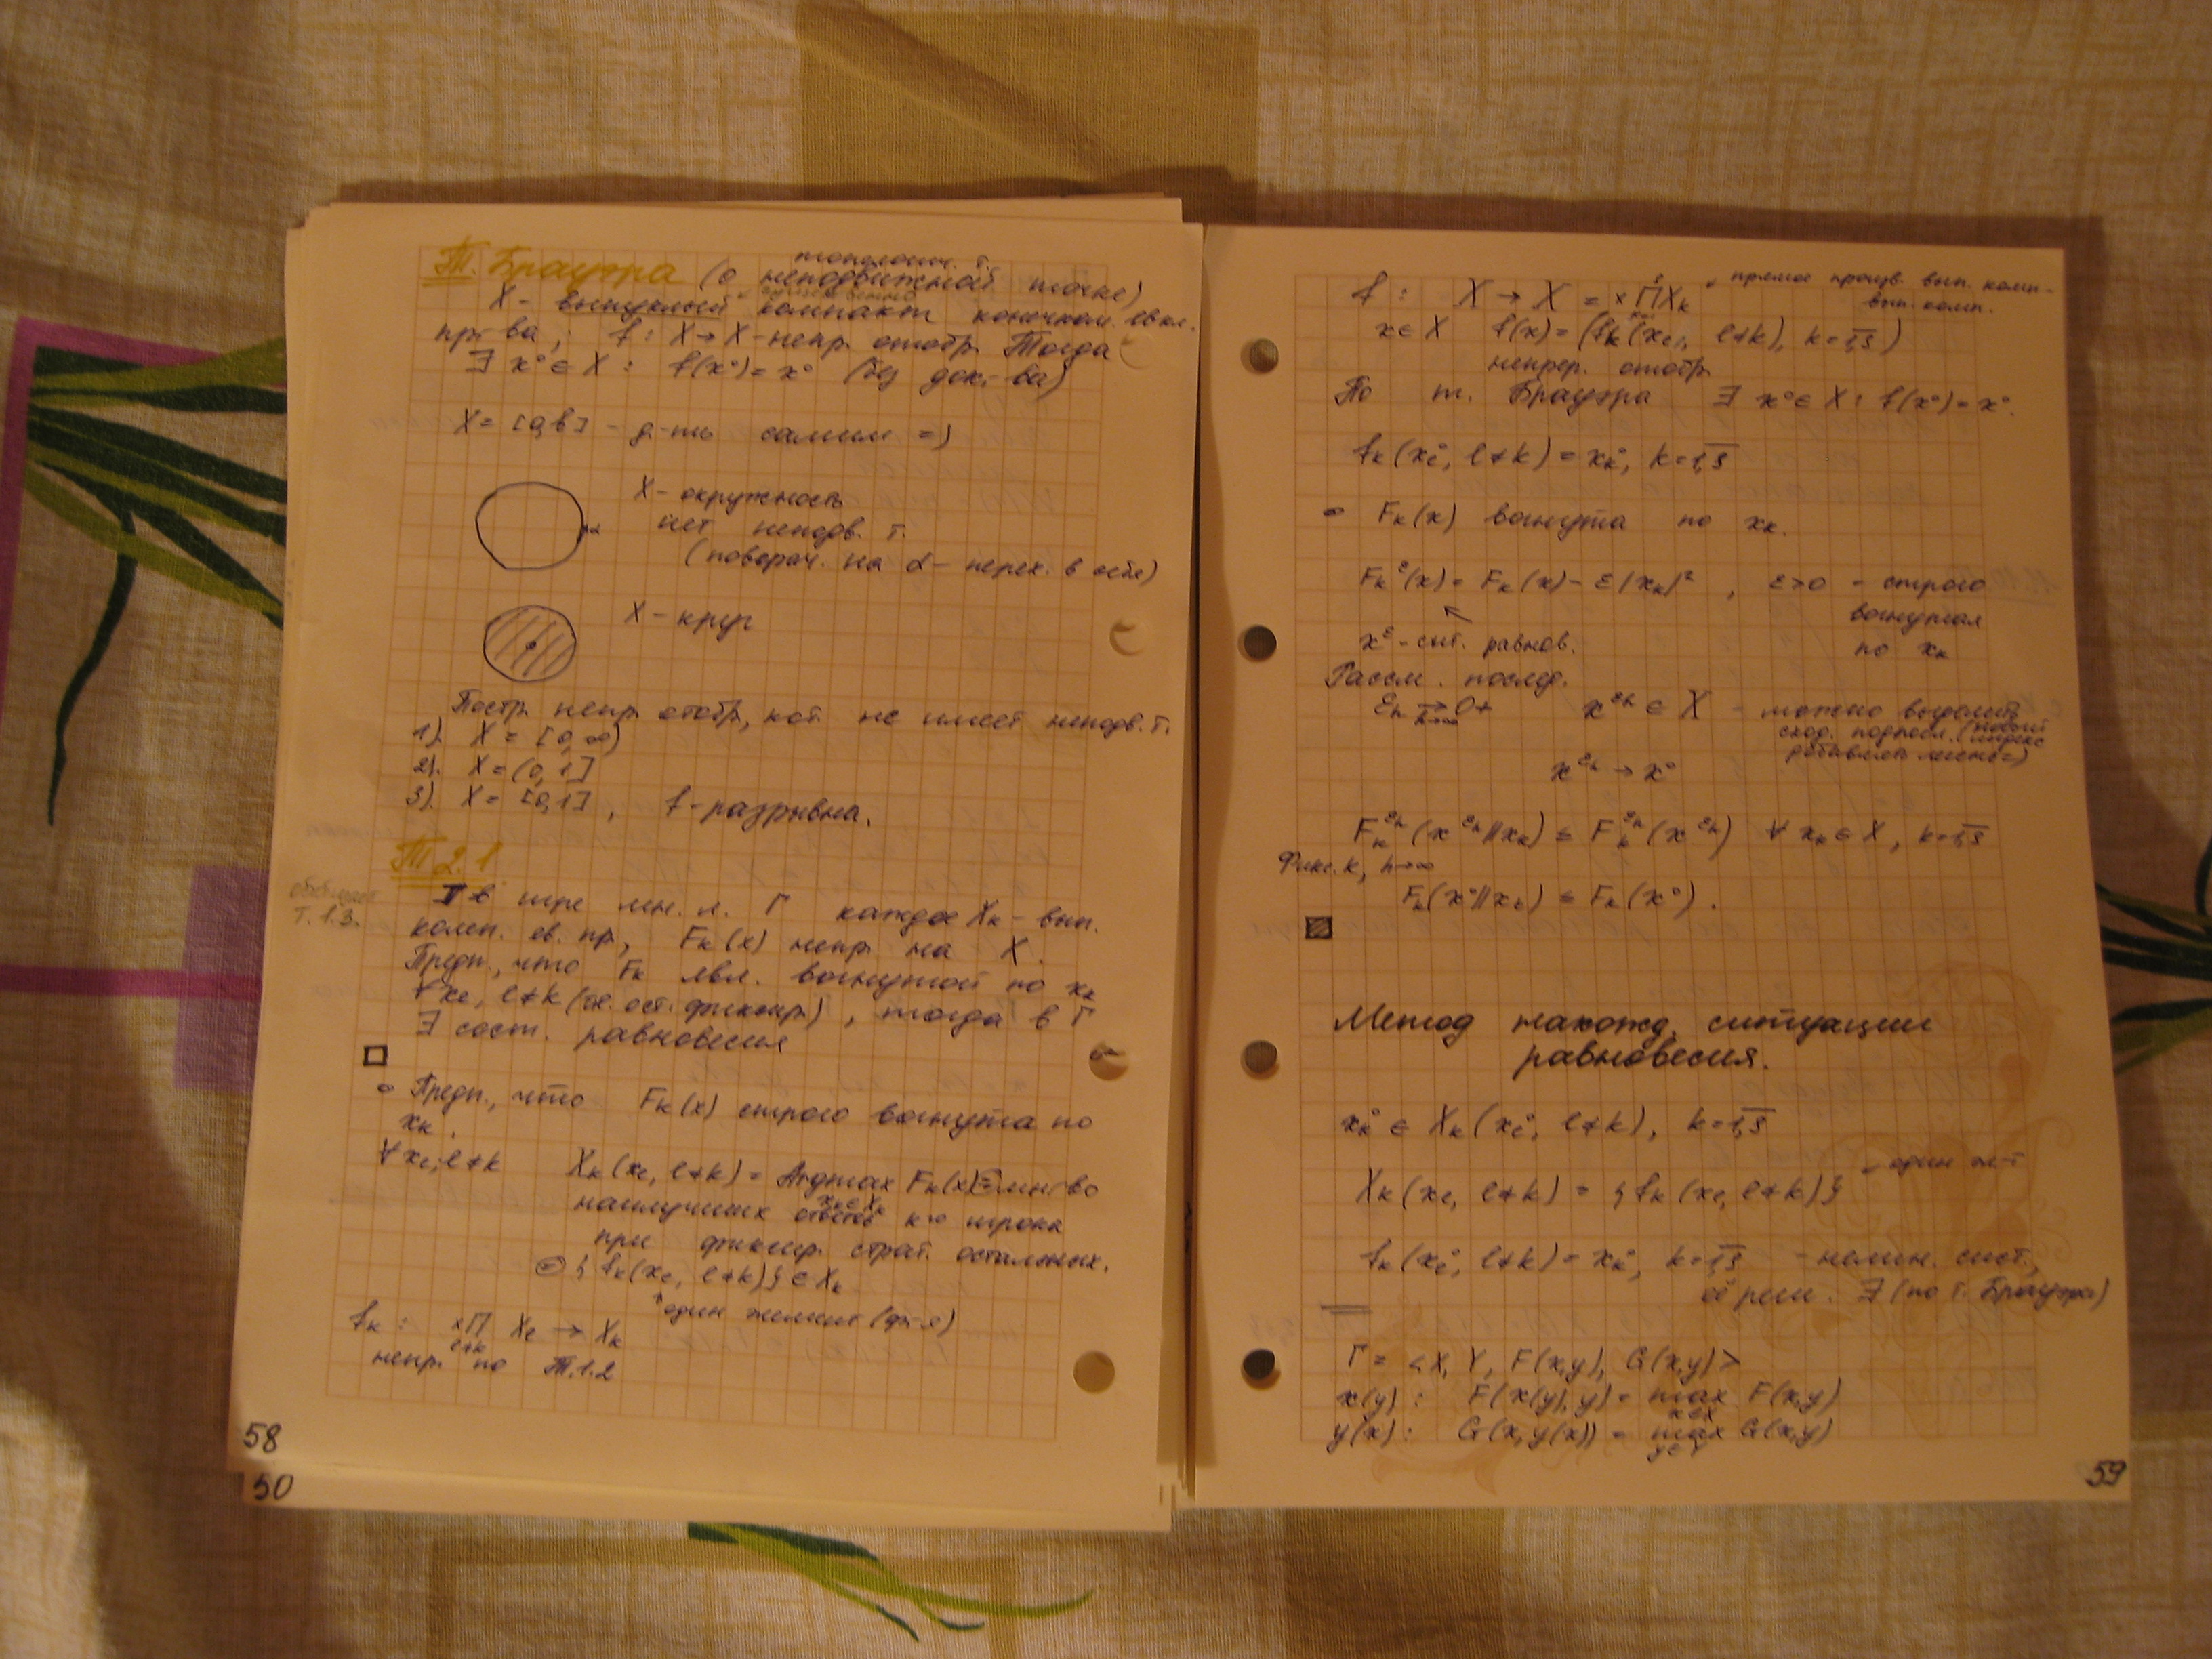 Т. Брауэра (о неподвижной точке)
топологич. т.
X - выпуклый компакт конечном. евкл.
существенно
пр-ва; f: X→X - непр. отобр. Тогда
∃ x°∈X: f(x°)=x° (без док-ва)
X=[a,b] - д-ть самим =)
X - окружность
нет неподв. т.
(поворач. на α - перех. в себя)
α
X - круг
Постр. непр. отобр., кот. не имеет неподв. т.
1). X = [0,∞)
2). X = (0,1]
3). X = [0,1], f - разрывна.
Т 2.1
обобщает
Т. 1.3.
П в игре мн. л. Г каждое Xk - вып.
комп. ев. пр., Fk(x) непр. на X.
Предп., что Fk явл. вогнутой по xk
∀xe, l≠k (т.е. ост. фиксир.), тогда в Г
∃ сост. равновесия
□
• Предп., что Fk(x) строго вогнута по
xk.
∀xe, l≠k Xk(xe, l≠k) = Argmax Fk(x) = мн-во
xk∈Xk
наилучших ответов k-го игрока
при фиксир. страт. остальных.
= {fk(xe, l≠k)} ∈ Xk
один элемент (ф-я)
fk: ×П Xe → Xk
l≠k
непр. по Т.1.2
58
50
f: X → X = ×П Xk
прямое произв. вып. комп. -
вып. комп.
x∈X f(x) = (fk(xe, l≠k), k=1,s)
непрер. отобр.
По т. Брауэра ∃ x°∈X: f(x°)=x°.
fk(xe°, l≠k) = xk°, k=1,s
• Fk(x) вогнута по xk.
Fk^ε(x) = Fk(x) - ε|xk|², ε>0 - строго
вогнутая
xε - сит. равнов. по xk
Рассм. послед.
εn → 0+ x^εn ∈ X - можно выделить
n→∞
сход. подпосл. (новый
индекс
добавлять лень =)
x^εn → x°
Fk^εn(x^εn||xk) ≤ Fk^εn(x^εn) ∀ xk∈X, k=1,s
Фикс. k, n→∞
Fk(x°||xk) ≤ Fk(x°).
Метод нахожд. ситуации
равновесия.
xk° ∈ Xk(xe°, l≠k), k=1,s
Xk(xe, l≠k) = {fk(xe, l≠k)} один эл-т
fk(xe°, l≠k) = xk°, k=1,s - нелин. сист.,
её реш. ∃ (по т. Брауэра)
Г = <X, Y, F(x,y), G(x,y)>
x(y): F(x(y),y) = max F(x,y)
x∈X
y(x): G(x,y(x)) = max G(x,y)
y∈Y
59